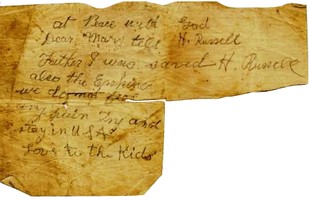 at with God
Dear Mary tell H. Russell
Father I was saved H. Russell
also the
we
any pain Try and
stay in USA
Love to the Kids